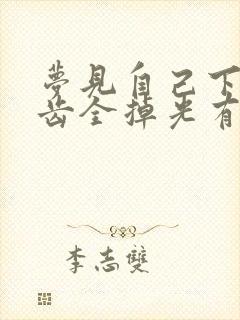 夢見自己下
齒全掉光有
李志雙